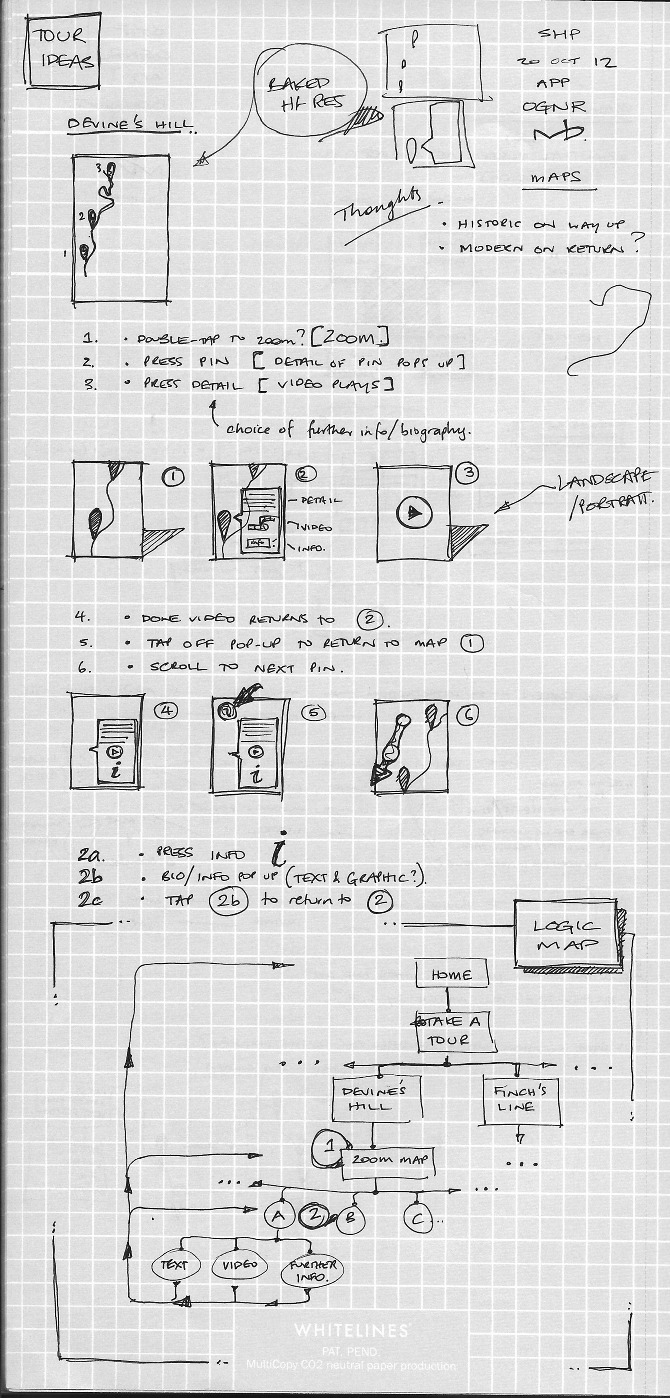 TOUR
IDEAS
BAKED
HI RES
SHP
20 OCT 12
APP
OGNR
MAPS
DEVINE'S HILL.
3
2
1
Thoughts
• HISTORIC ON WAY UP
• MODERN ON RETURN?
1. • DOUBLE-TAP TO ZOOM? [ZOOM.]
2. • PRESS PIN [DETAIL OF PIN POPS UP]
3. • PRESS DETAIL [VIDEO PLAYS]
choice of further info/biography.
1
2
3
DETAIL
VIDEO
INFO.
INFO
LANDSCAPE
/PORTRAIT.
4. • DONE VIDEO RETURNS TO 2.
5. • TAP OFF POP-UP TO RETURN TO MAP 1
6. • SCROLL TO NEXT PIN.
4
5
6
i
i
2a. • PRESS INFO i
2b • BIO/INFO POP UP (TEXT & GRAPHIC?).
2c • TAP 2b to return to 2
LOGIC
MAP
HOME
TAKE A
TOUR
DEVINE'S
HILL
FINCH'S
LINE
1
ZOOM MAP
A
2
B
C
TEXT
VIDEO
FURTHER
INFO.
WHITELINES
PAT. PEND.
MultiCopy CO2 neutral paper production